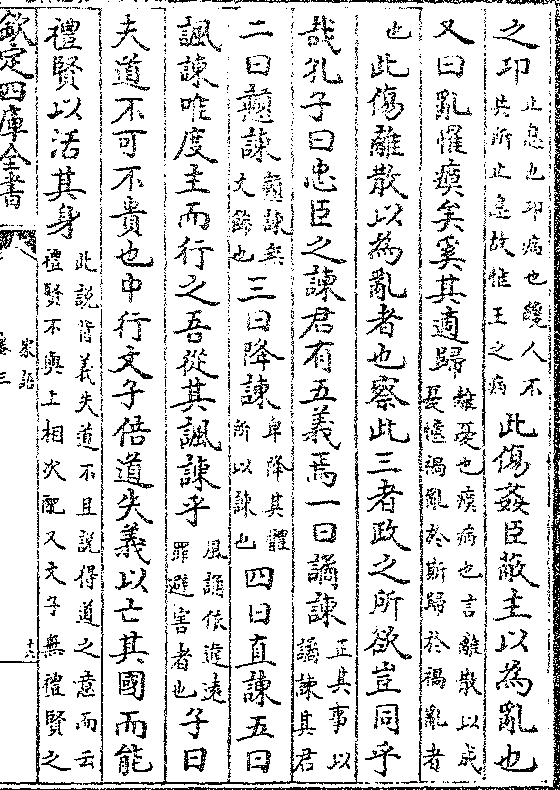 之卭止息也卭病也讒人不共所止息故惟王之病此傷姦臣蔽主以為亂也
又曰亂罹瘼矣奚其適歸離憂也瘼病也言離散以成憂憶禍亂於斯歸於禍亂者
也此傷離散以為亂者也察此三者政之所欲豈同乎
哉孔子曰忠臣之諫君有五義焉一曰譎諫正其事以譎諫其君
二曰戇諫戇諫無文飾也三曰降諫卑降其體所以諫也四曰直諫五曰
諷諫唯度主而行之吾從其諷諫乎風諷依違遠罪避害者也子曰
夫道不可不貴也中行文子倍道失義以亡其國而能
禮賢以活其身此説背義失道不且説得道之意而云禮賢不與上相次配又文子無禮賢之
欽定四庫全書
家語
卷三